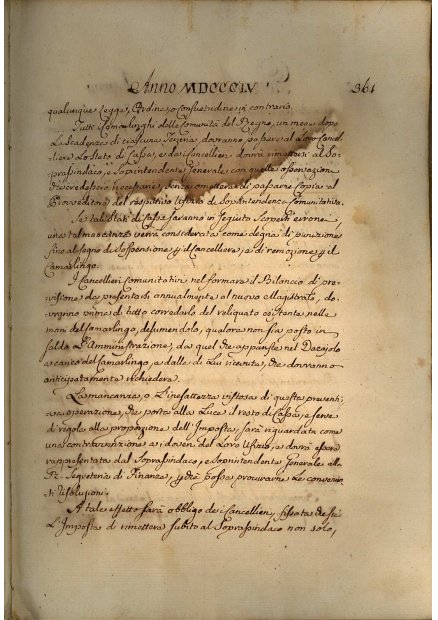 Anno MDCCCIV. 361
qualunque Legge, Ordine, o consuetudine in contrario.
Tutti i Camarlinghi delle Comunità del Regno, un mese dopo
la scadenza di ciascuna dovranno passare al Loro Cancel-
liere lo stato di Cassa, e dai Cancellieri dovrà rimettersi al So-
prassindaco, e Soprintendente Generale con quelle osservazioni
che credessero necessarie, senza omettere di passarne Copia al
Provveditore del respettivo Ufizio di Soprintendenza Comunitativa.
Se tali Stati di Cassa saranno in seguito scoperti erronei,
una tal mancanza verrà considerata come degna di punizione
fino al segno di Sospensione p il Cancelliere, e di remozione p il
Camarlingo.
I Cancellieri Comunitativi nel formare il Bilancio di pre-
visione da presentarsi annualmente al nuovo Magistrato, do-
vranno prima di tutto corredarlo del reliquato esistente nelle
mani del Camarlingo, desumendolo, qualora non sia posto in
saldo l'Amministrazione, da quel che apparisse nel Dazzajolo
a carico del Camarlingo, e dalle di Lui ricevute, che dovranno
anticipatamente richiedersi.
La mancanza, o l'inesattezza vistosa di questa preventi-
va operazione, che porta alla Luce il resto di Cassa, e serve
di regola alla proporzione dell'Imposta, sarà riguardata come
una contravvenzione ai doveri del Loro Ufizio, e dovrà essere
rappresentata dal Soprassindaco, e Soprintendente Generale alla
R. Segreteria di Finanze, p chè possa procurarne le convenien-
ti risoluzioni.
A tale effetto sarà obbligo dei Cancellieri, fissata che sia
l'Imposta di rimettere subito al Soprassindaco non solo,